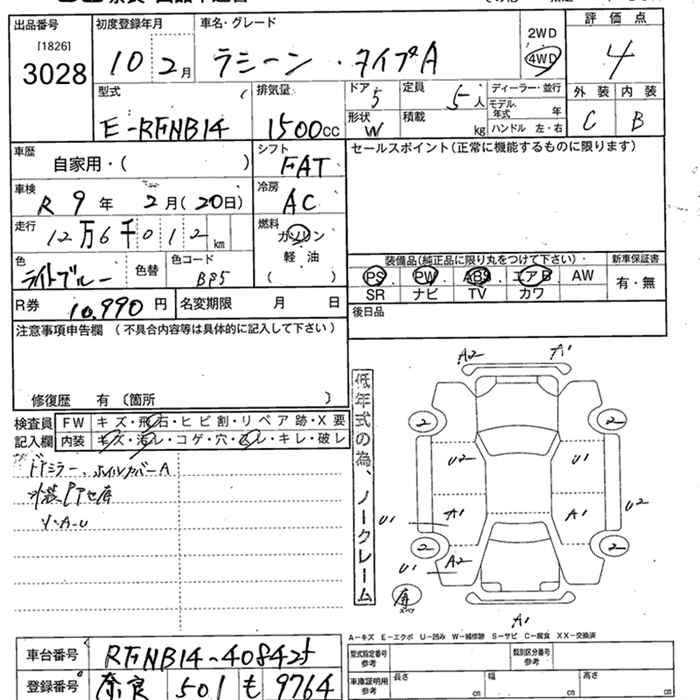 出品番号 初度登録年月 車名・グレード 2WD 4WD 評価点
[1826]
3028 10 2月 ラシーン・タイプA 4
型式 排気量 ドア 定員 ディーラー・並行 外装 内装
E-RFNB14 1500cc 5 5人 モデル年式 年
形状 W 積載 kg ハンドル 左・右 C B
車歴 シフト セールスポイント(正常に機能するものに限ります)
自家用・( ) FAT
車検 冷房
R9年 2月(20日) AC
走行 燃料
12万6千012km ガソリン
軽油
色 色替 色コード ( )
ライトブルー BP5
装備品(純正品に限り丸をつけて下さい) 新車保証書
PS PW ABS エアB AW 有・無
SR ナビ TV カワ
R券 10,990円 名変期限 月 日 後日品
注意事項申告欄(不具合内容等は具体的に記入して下さい)
修復歴 有〔箇所 〕
検査員記入欄 FW キズ・飛石・ヒビ割・リペア跡・X要
内装 キズ・汚レ・コゲ・穴・スレ・キレ・破レ
ドアミラー、ホイルカバーA
Y・A・U
低年式の為、ノークレーム
A2 A1
2 2
U2 U1
A1 A1 U2
U1
2 2
U1 A2
A1
A-キズ E-エクボ U-凹み W-補修跡 S-サビ C-腐食 XX-交換済
車台番号 RFNB14-408425
登録番号 奈良 501 も 9764
型式指定番号 参考 類別区分番号 参考
車庫証明用 参考 長さ 幅 高さ